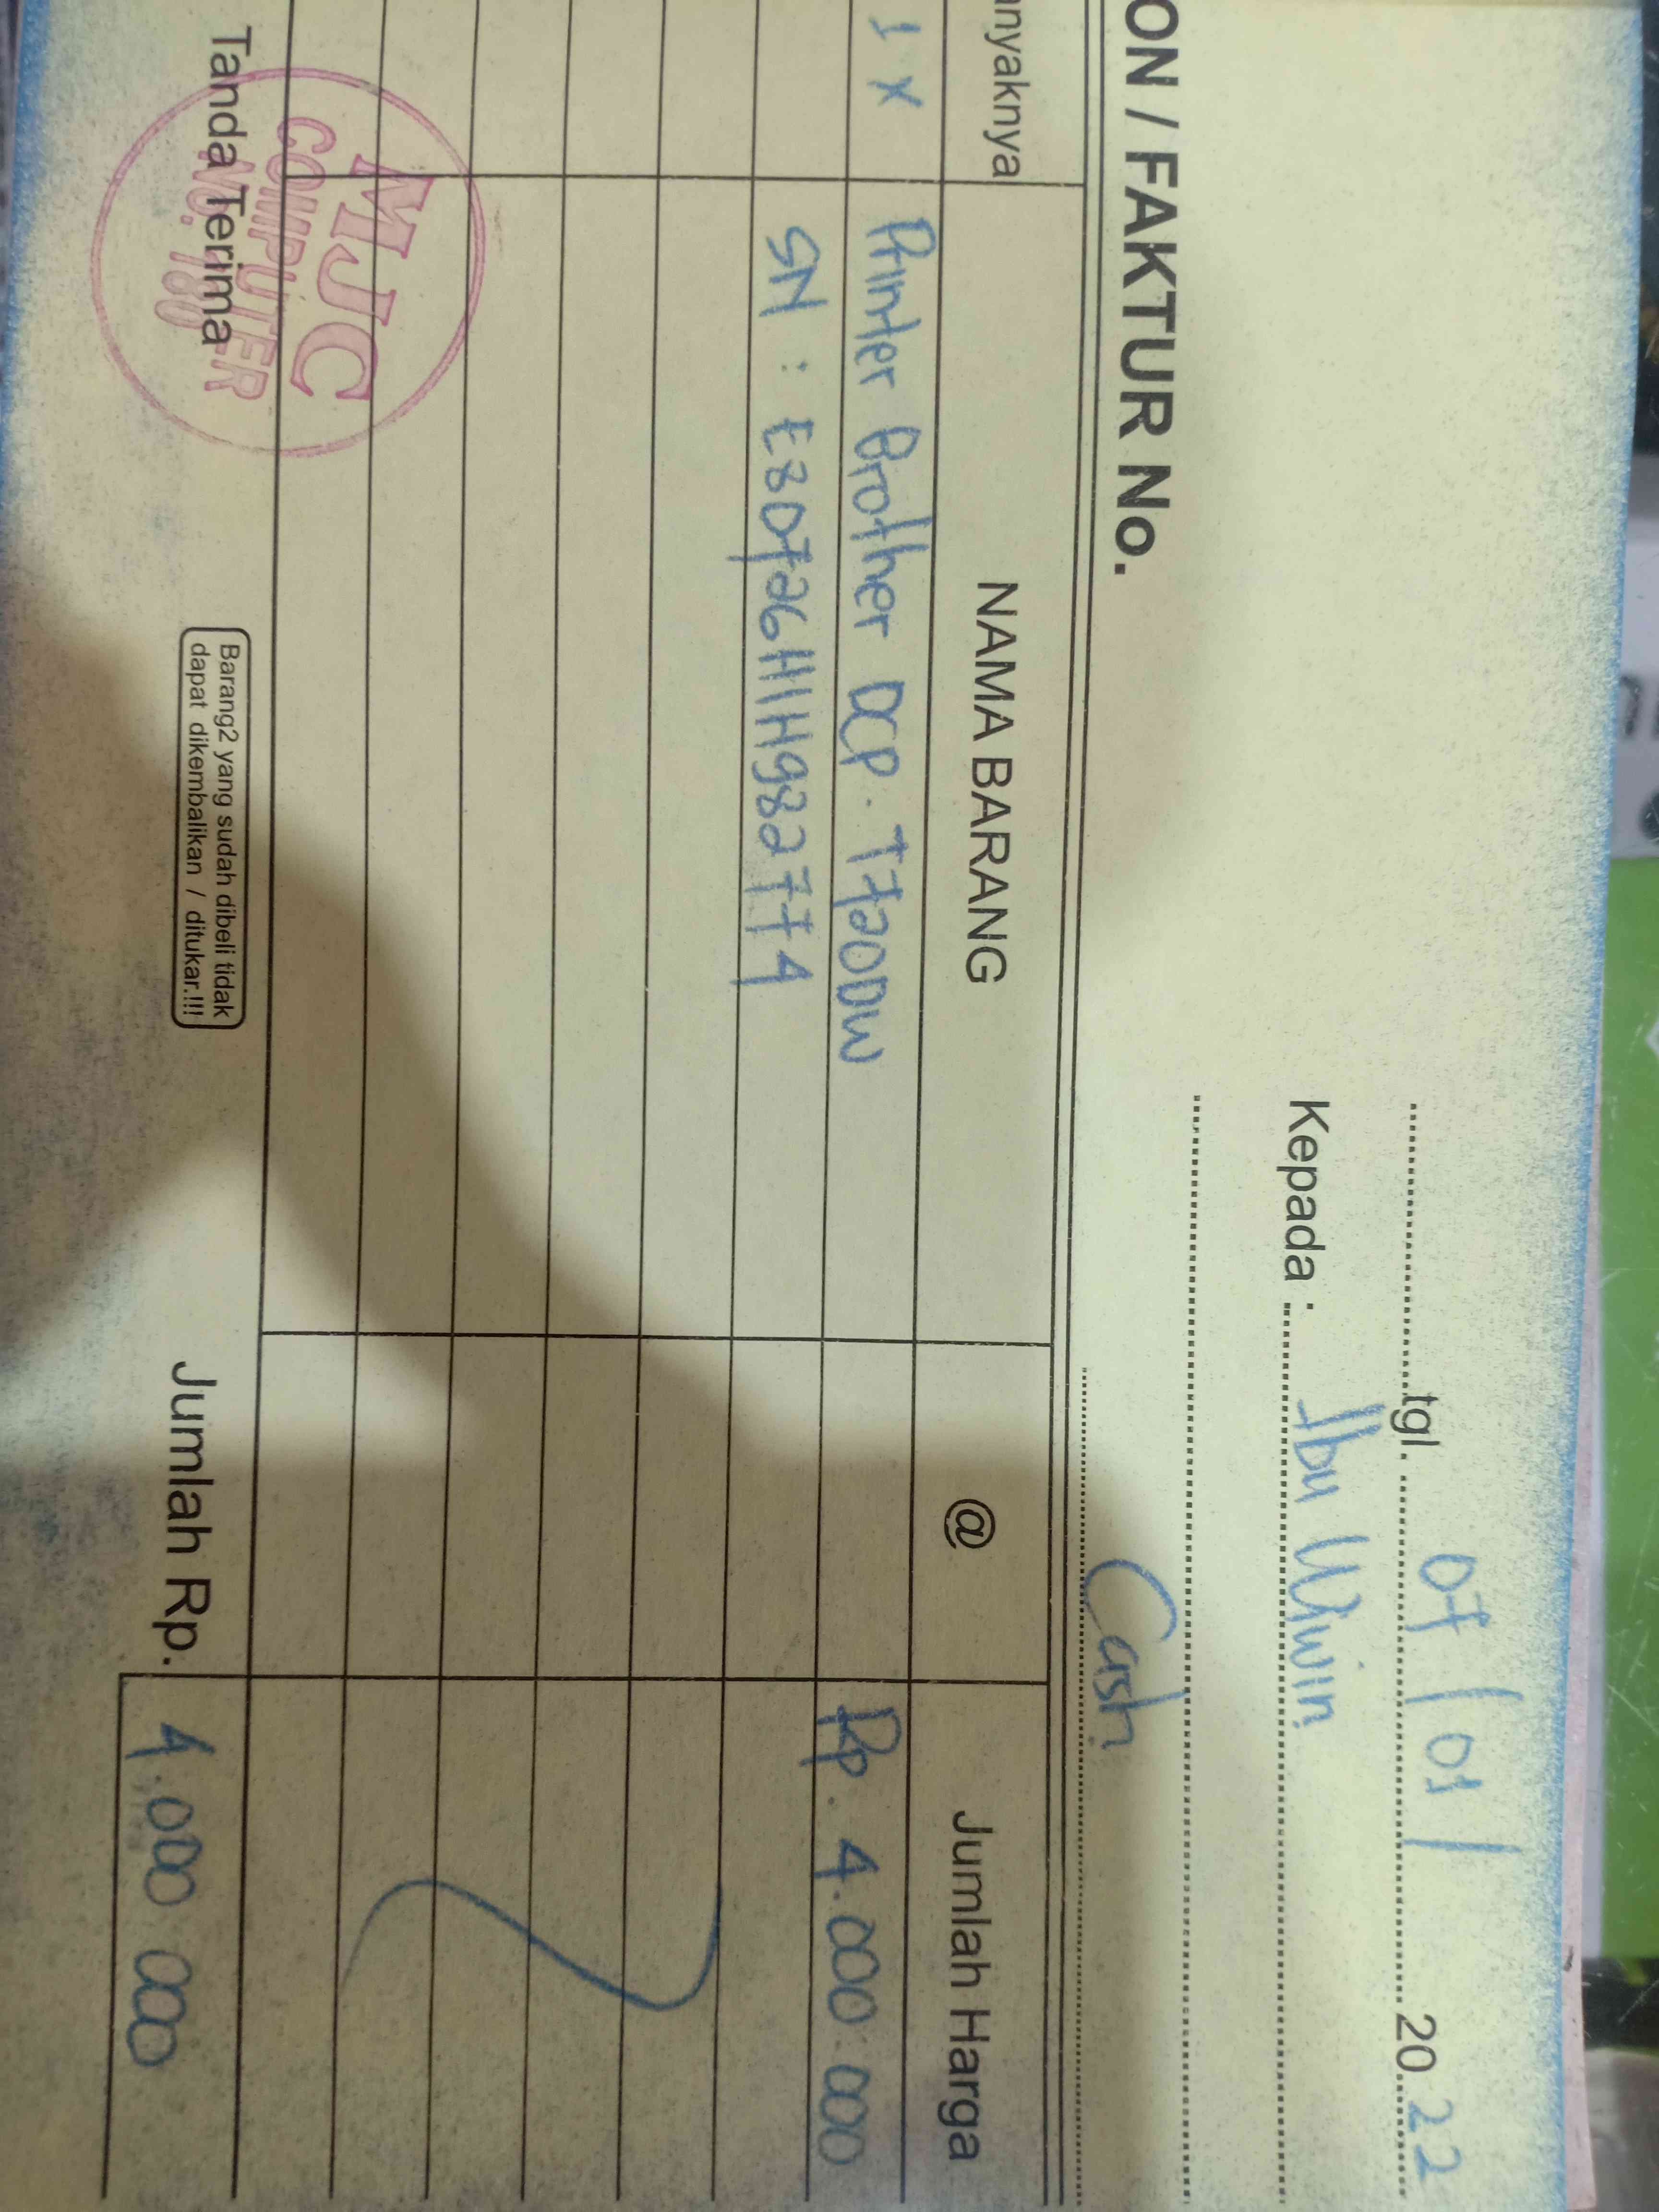 tgl. 07 / 01 / 20 22
Kepada : Ibu Wiwin
ON / FAKTUR No.
Cash
nyaknya NAMA BARANG @ Jumlah Harga
1 x Printer Brother DCP. T720DW Rp. 4.000.000
SN : E80726H1H982774
Tanda Terima
MJC
COMPUTER
NO. 780
Barang2 yang sudah dibeli tidak
dapat dikembalikan / ditukar.!!!
Jumlah Rp. 4.000 000